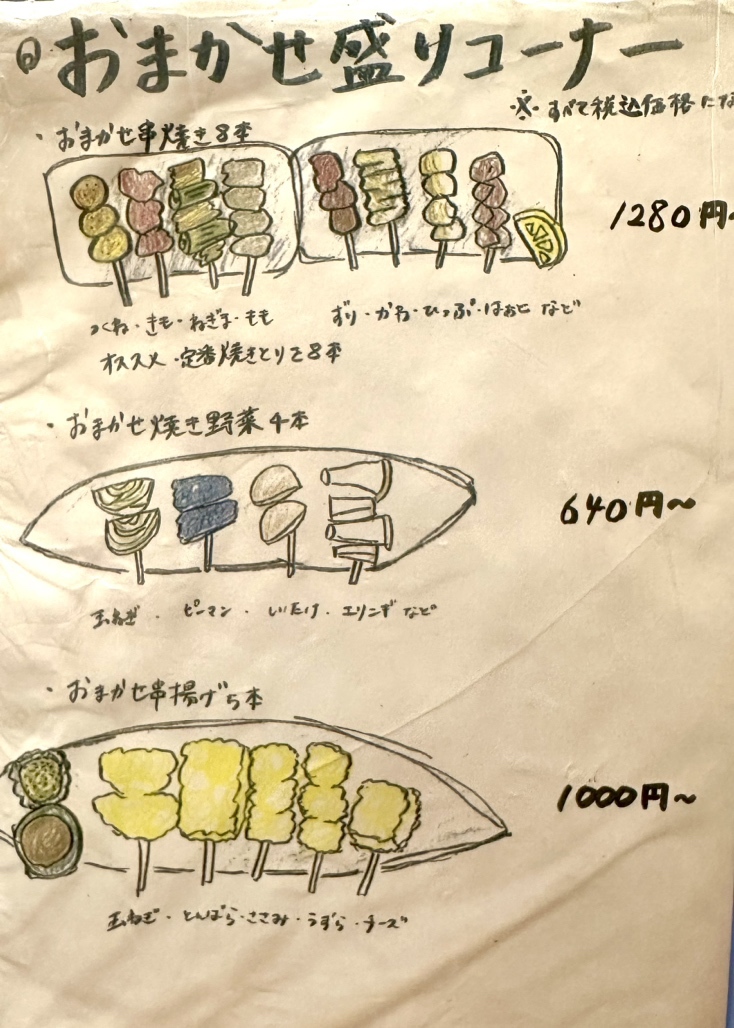 おまかせ盛りコーナー
※すべて税込価格にな
・おまかせ串焼き8本
1280円~
つくね・きも・ねぎま・もも
ずり・かわ・ひっぷ・はぁと など
オススメ・定番焼きとりを8本
・おまかせ焼き野菜4本
640円~
玉ねぎ・ピーマン・しいたけ・エリンギ など
・おまかせ串揚げ5本
1000円~
玉ねぎ・とんばら・ささみ・うずら・チーズ